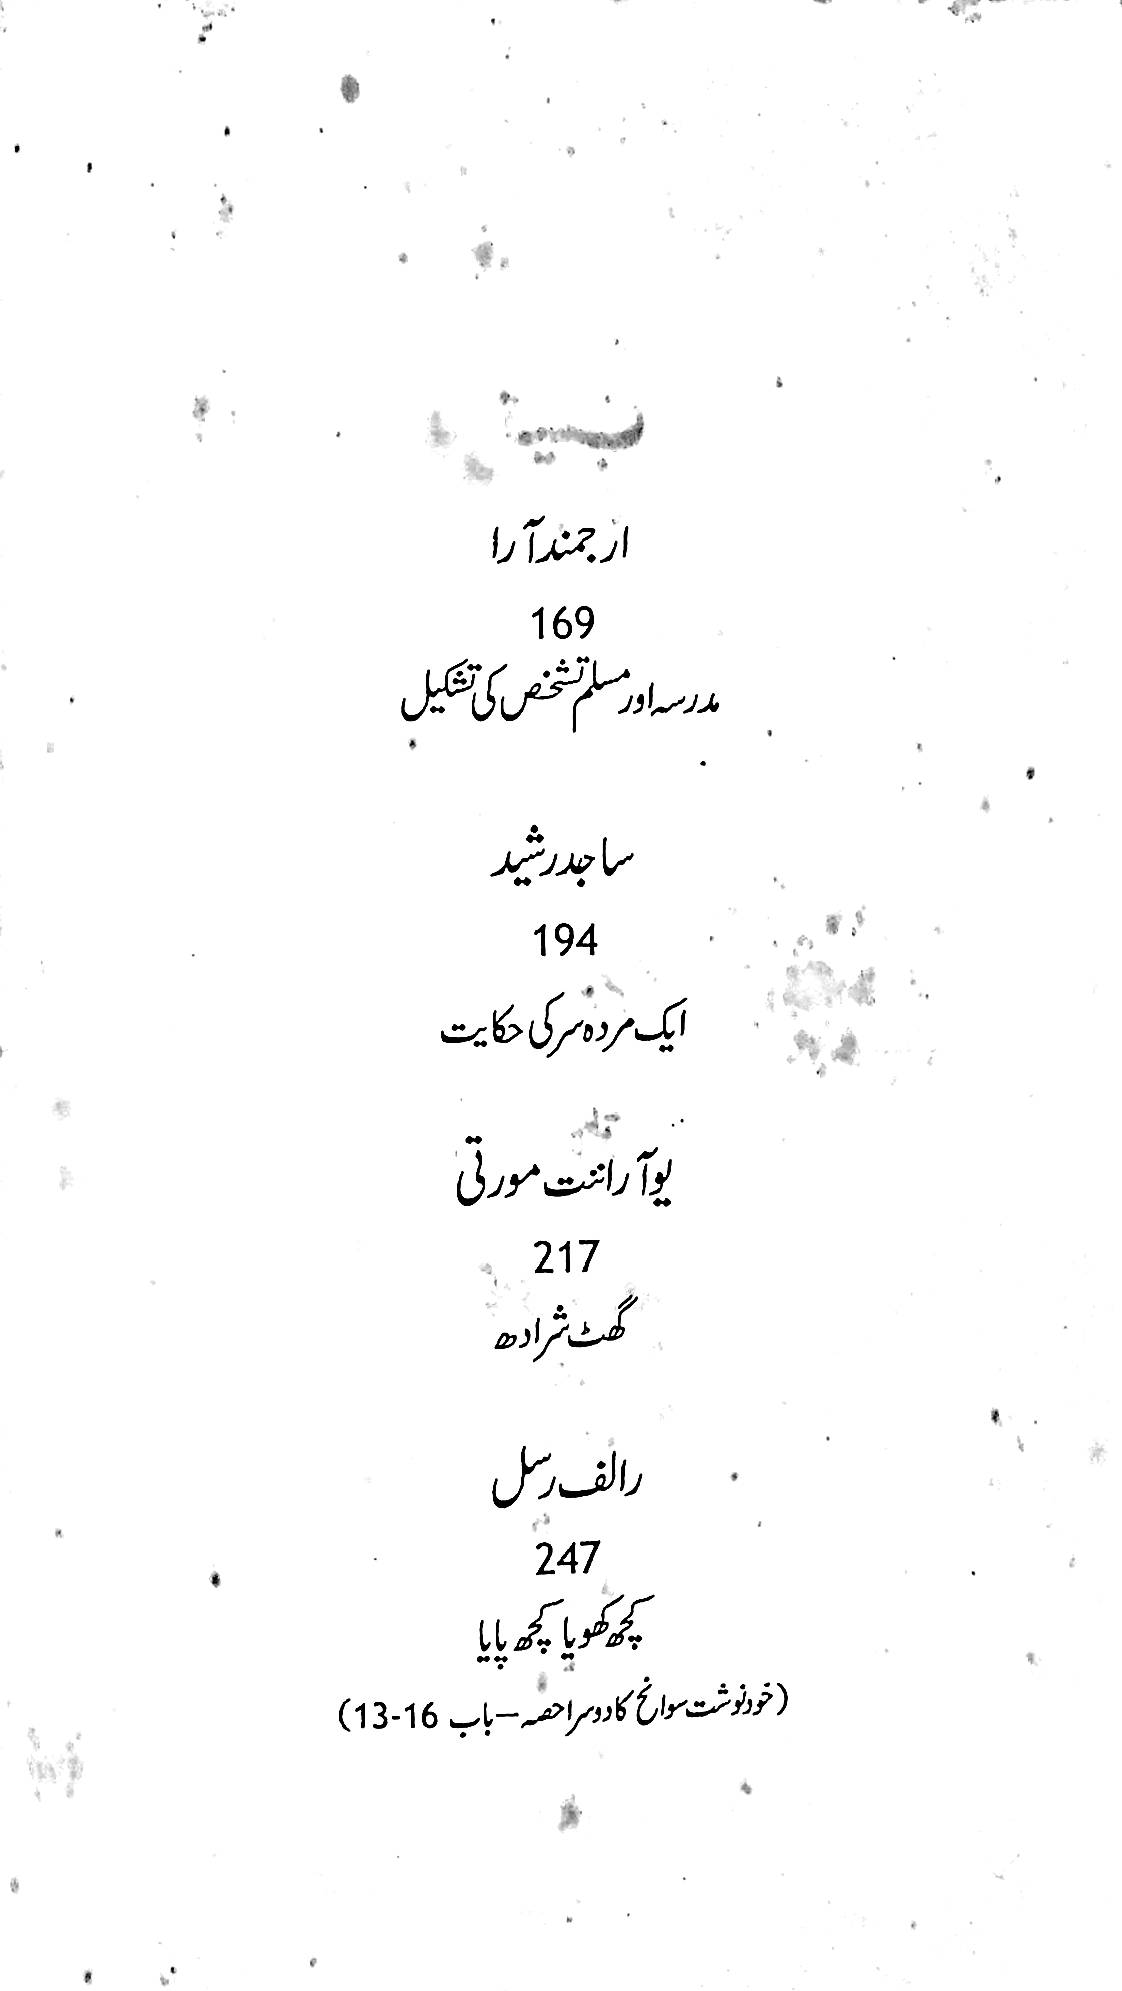 ارجمند آرا
169
مدرسہ اور مسلم تشخص کی تشکیل
ساجد رشید
194
ایک مردہ سر کی حکایت
یو آر اننت مورتی
217
گھٹ شرادھ
رالف رسل
247
کچھ کھویا کچھ پایا
(خودنوشت سوانح کا دوسرا حصہ — باب 13-16)